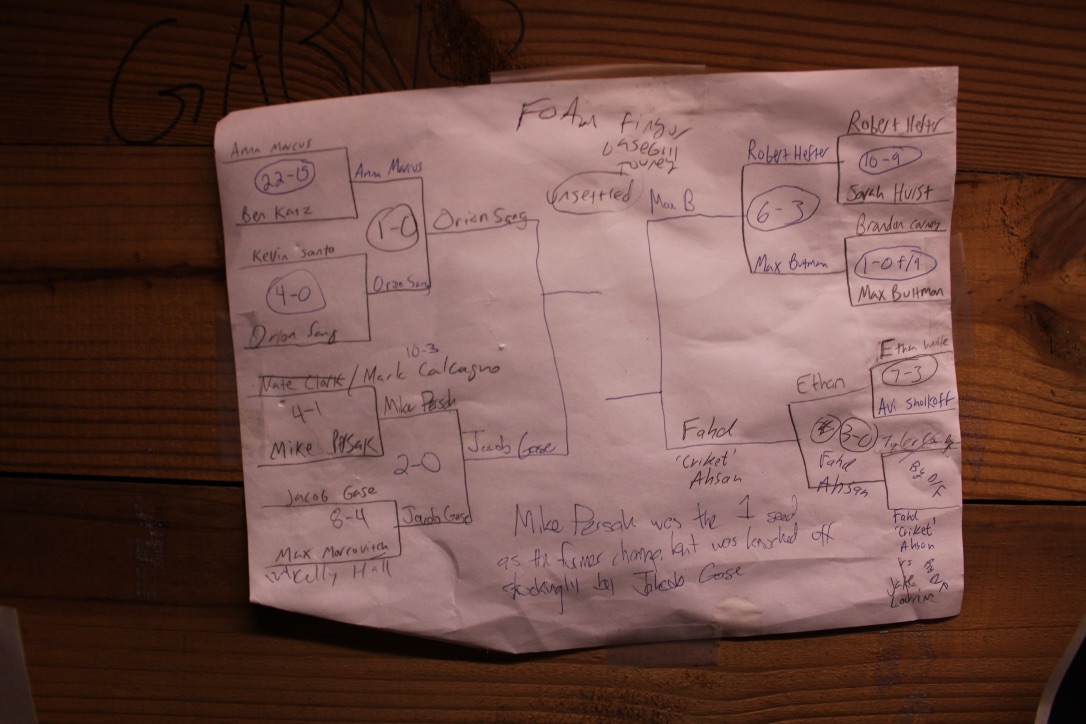 FOAm Finger
Baseball
Tourney
Unsettled
Anna Marcus
22-15
Ben Katz
Anna Marcus
1-0
Kevin Santo
4-0
Orion Sang
Orion Sang
Orion Sang
10-3
Nate Clark / Mark Calcagno
4-1
Mike Persak
Mike Persak
2-0
Jacob Gase
8-4
Max Marcovitch
Kelly Hall
Jacob Gase
Jacob Gase
Max B
Robert Hefter
6-3
Max Buttman
Robert Hefter
10-9
Sarah Hurst
Brandon Carney
1-0 f/9
Max Buttman
Fahd
'Criket'
Ahsan
Ethan
3-0
Fahd
Ahsan
Ethan
7-3
Avi Sholkoff
Tyler
By D/F
Fahd
'Criket'
Ahsan
vs
Jake
Mike Persak was the 1 seed
as the former champ, but was knocked off
shockingly by Jakcob Gase